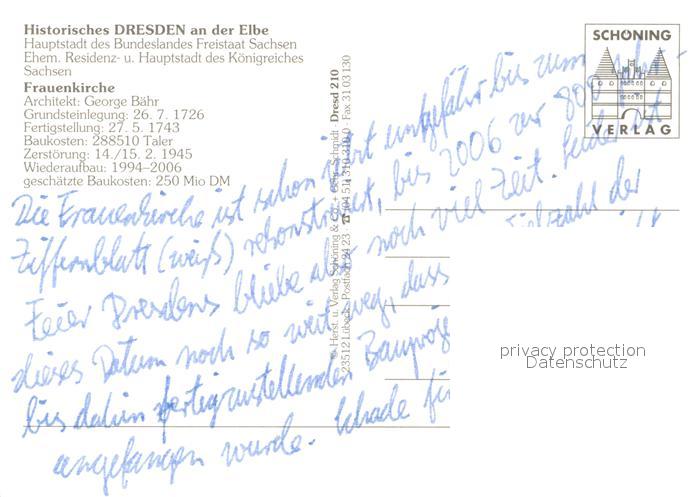 Historisches DRESDEN an der Elbe
Hauptstadt des Bundeslandes Freistaat Sachsen
Ehem. Residenz- u. Hauptstadt des Königreiches
Sachsen
Frauenkirche
Architekt: George Bähr
Grundsteinlegung: 26. 7. 1726
Fertigstellung: 27. 5. 1743
Baukosten: 288510 Taler
Zerstörung: 14./15. 2. 1945
Wiederaufbau: 1994–2006
geschätzte Baukosten: 250 Mio DM
SCHÖNING
VERLAG
Dresd 2 10
© Herst. u. Verlag Schöning & Co. + Schmidt
23512 Lübeck, Postfach 24 23 ☎ 04 51 / 310 310 · Fax 31 03 130
Die Frauenkirche ist schon jetzt ungefähr bis zum
Ziffernblatt (weiß) rekonstruiert, bis 2006 zur 800
Feier Dresdens bliebe aber noch viel Zeit. Leider ist
dieses Datum noch so weit weg, dass Vielzahl der
bis dahin fertigzustellenden
angefangen wurde. Schade
privacy protection
Datenschutz